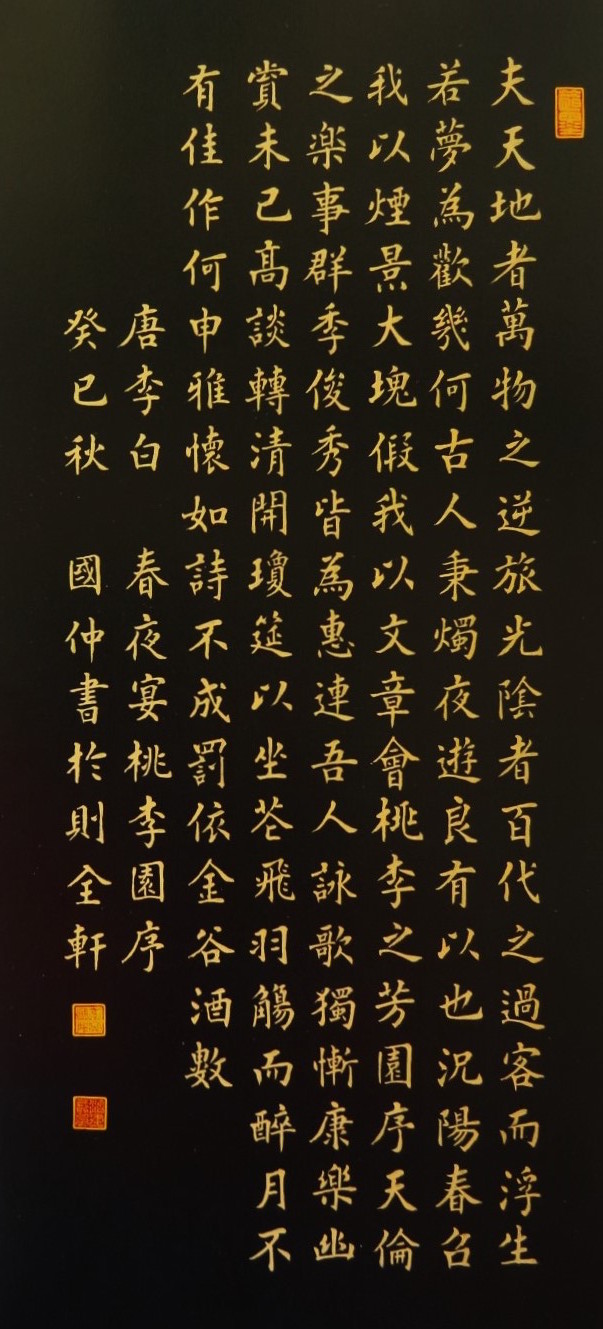 夫天地者萬物之逆旅光陰者百代之過客而浮生
若夢為歡幾何古人秉燭夜遊良有以也況陽春召
我以煙景大塊假我以文章會桃李之芳園序天倫
之楽事群季俊秀皆為惠連吾人詠歌獨慚康樂幽
賞未已高談轉清開瓊筵以坐芲飛羽觴而醉月不
有佳作何申雅懷如詩不成罰依金谷酒數
唐李白 春夜宴桃李園序
癸巳秋 國仲書於則全軒